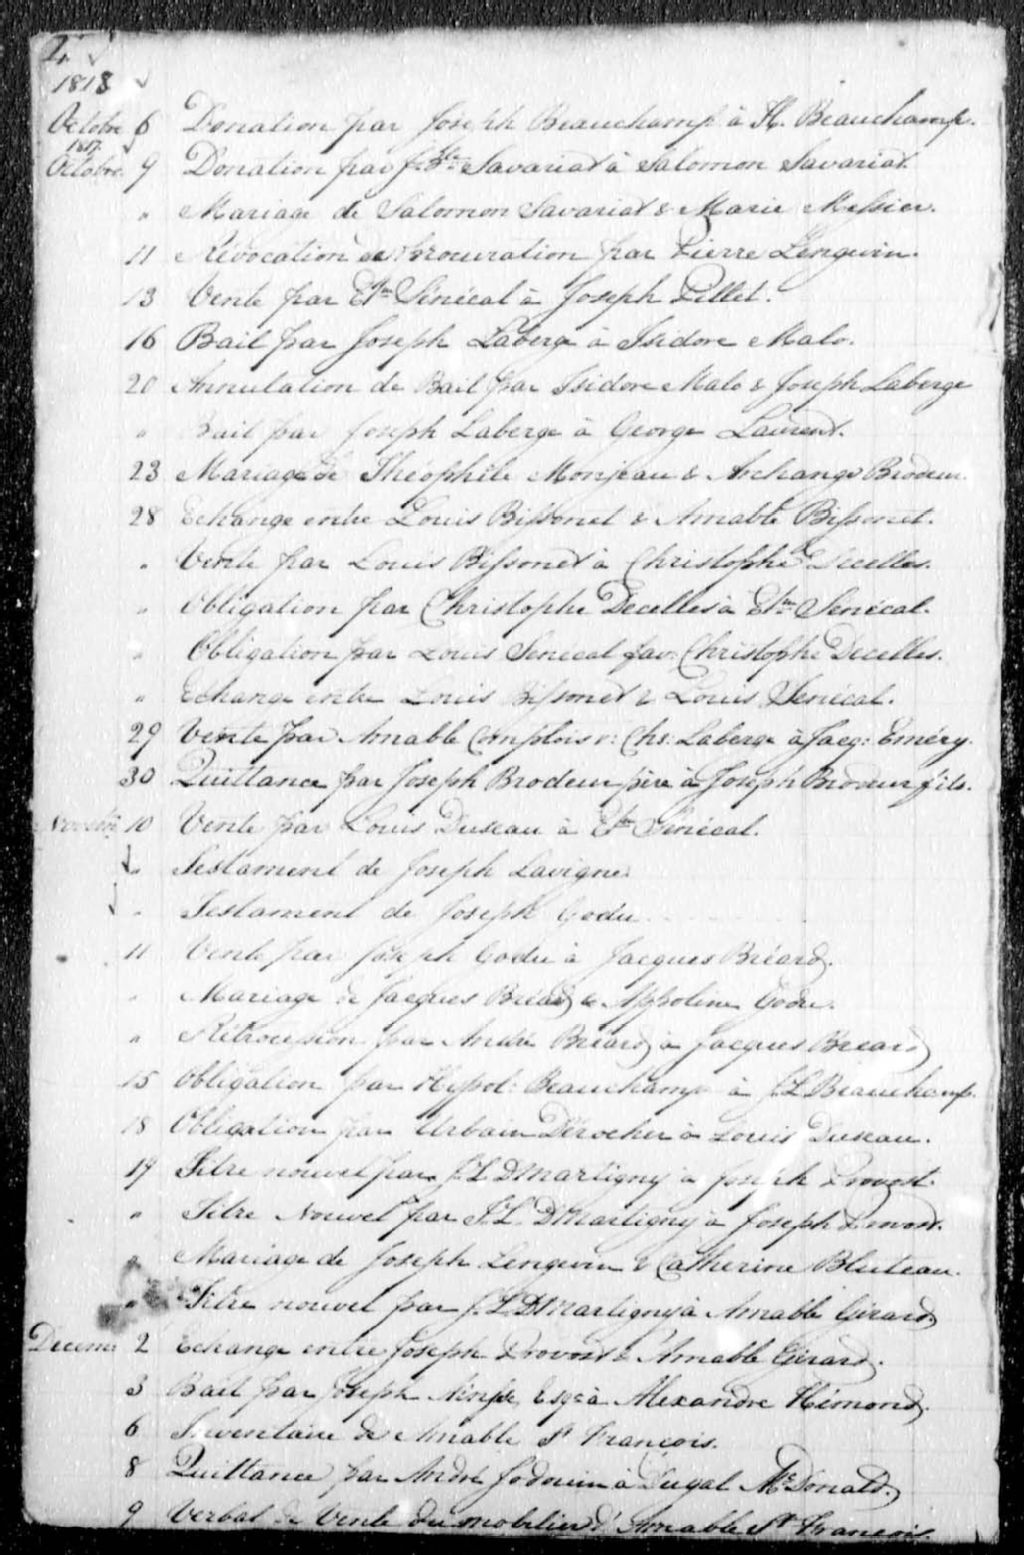 1818
Octobre 6 Donation par Joseph Beauchamp à H. Beauchamp.
1817.
Octobre 9 Donation par J. Bte Savariat à Salomon Savariat.
" Mariage de Salomon Savariat & Marie Messier.
11 Révocation de Procuration par Pierre Lenguin.
13 Vente par Etne Sénécal à Joseph Pillet.
16 Bail par Joseph Laberge à Isidore Malo.
20 Annulation de Bail par Isidore Malo & Joseph Laberge
" Bail par Joseph Laberge à George Laurent.
23 Mariage de Théophile Monjeau & Archange Brodeur.
28 Echange entre Louis Bissonet & Amable Bissonet.
" Vente par Louis Bissonet à Christophe Decelles.
" Obligation par Christophe Decelles à Etne Senécal.
" Obligation par Louis Senécal fav: Christophe Decelles.
" Echange entre Louis Bissonet & Louis Senécal.
29 Vente par Amable Chs: Laberge à Jacq: Eméry.
30 Quittance par Joseph Brodeur père à Joseph Brodeur fils.
Novembr 10 Vente par Louis Duseau à Etne Sénécal.
" Testament de Joseph Lavigne.
" Testament de Joseph Godu
11 Vente par Joseph Godu à Jacques Bréard.
" Mariage de Jacques Bréard & Appoline Godu.
" Rétrocession par André Bréard à Jacques Bréard
15 Obligation par Hypol: Beauchamp à J. L Beauchamp.
18 Obligation par Urbain Derocher à Louis Duseau.
19 Titre nouvel par J. L DMartigny à Joseph Provost.
" Titre Nouvel par J. L. DMartigny à Joseph
" Mariage de Joseph Lenguin & Catherine Bluteau.
" Titre nouvel par J. L DMartigny à Amable Girard
Decem 2 Echange entre Joseph Provost & Amable Girard.
3 Bail par Joseph Esqr à Alexandre Hémond.
6 Inventaire de Amable St François.
8 Quittance par André Jodouin à Dugal McDonald.
9 Verbal de Vente du mobilier d'Amable St François.